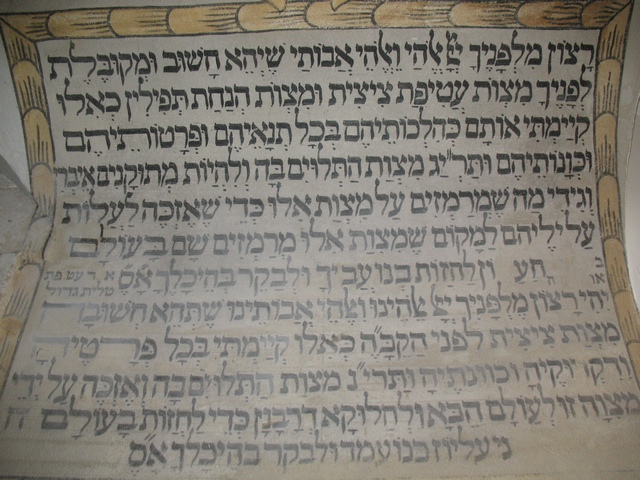 רצון מלפניך יאלהי ואלהי אבותי שיהא חשוב ומקובלת
לפניך מצות עטיפת ציצית ומצות הנחת תפילין כאלו
קיימתי אותם כהלכותיהם בכל תנאיהם ופרטותיהם
וכונותיהם ותרי״ג מצות התלוים בה ולהיות מתוקנים איברי
וגידי מה שמרמזים על מצות אלו כדי שאזכה לעלות
על ידיהם למקום שמצות אלו מרמזים שם בעולם
ולחזות בנועם ולבקר בהיכלך א״ס
טלית גדול
יהי רצון מלפניך אלהינו ואלהי אבותינו שתהא חשובה
מצות ציצית לפני הקב״ה כאלו קיימתי בכל פרטיה
ודקדוקיה וכוונתיה ותרי״ג מצות התלוים בה ואזכה על ידי
מצוה זו לעולם הבא ולחלוקא דרבנן כדי לחזות בעולם
ולבקר בהיכלך א״ס